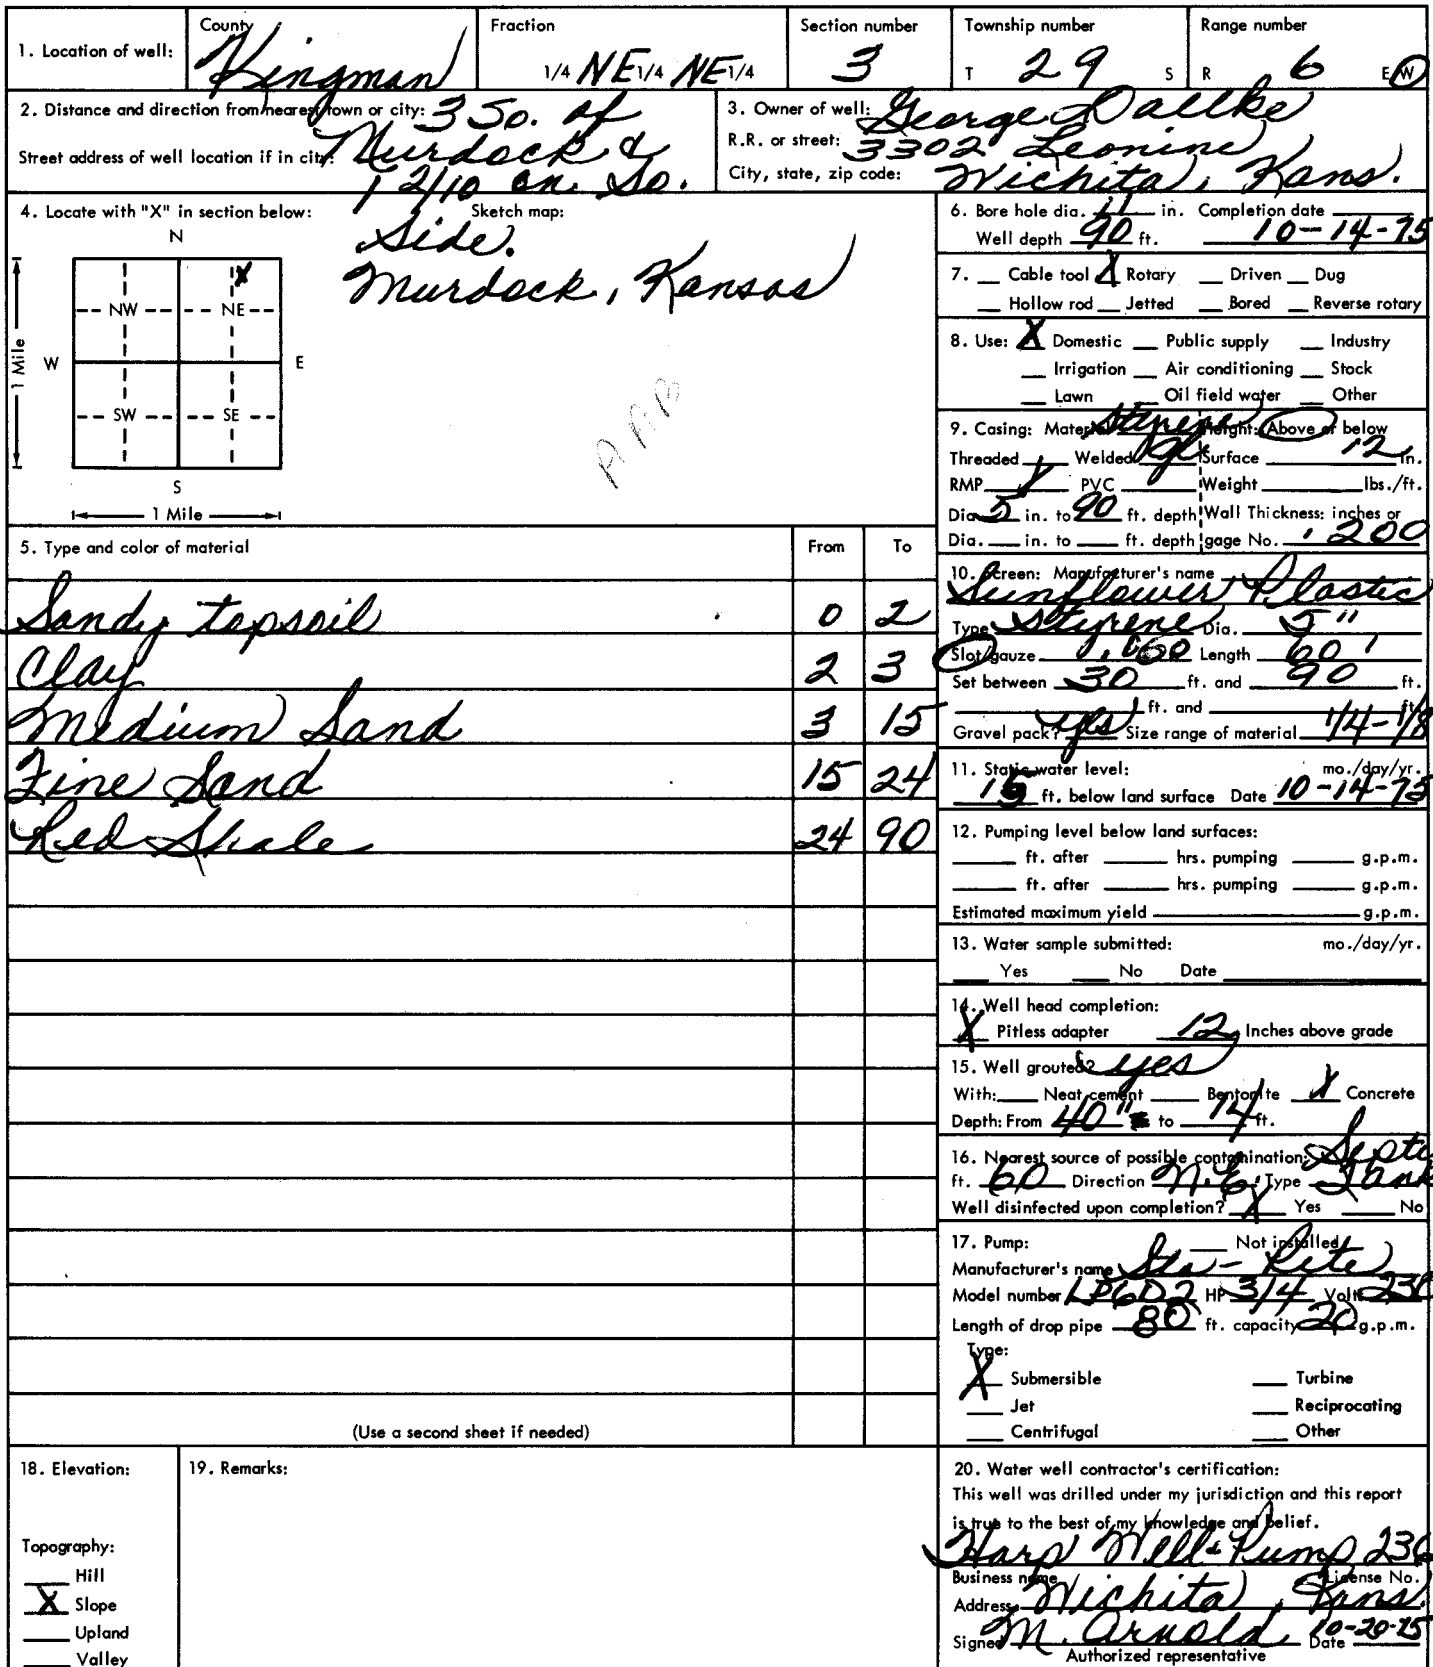 1. Location of well: County Kingman Fraction 1/4 NE 1/4 NE 1/4 Section number 3 Township number T 29 S Range number R 6 E W
2. Distance and direction from nearest town or city: 3 So. of
Street address of well location if in city: Murdock &
1 2/10 on So.
Side.
Murdock, Kansas
3. Owner of well: George Dallke
R.R. or street: 3302 Leonine
City, state, zip code: Wichita, Kans.
4. Locate with "X" in section below: Sketch map:
N
X
NW NE
W E
1 Mile
SW SE
S
1 Mile
5. Type and color of material From To
Sandy topsoil 0 2
Clay 2 3
Medium Sand 3 15
Fine Sand 15 24
Red Shale 24 90
(Use a second sheet if needed)
6. Bore hole dia. 11 in. Completion date
Well depth 90 ft. 10-14-75
7. Cable tool X Rotary Driven Dug
Hollow rod Jetted Bored Reverse rotary
8. Use: X Domestic Public supply Industry
Irrigation Air conditioning Stock
Lawn Oil field water Other
9. Casing: Material Styrene Height: Above or below
Threaded Welded gl Surface 12 in.
RMP X PVC Weight lbs./ft.
Dia. 5 in. to 90 ft. depth Wall Thickness: inches or
Dia. in. to ft. depth gage No. .200
10. Screen: Manufacturer's name
Sunflower Plastic
Type Styrene Dia. 5"
Slot/gauze .060 Length 60'
Set between 30 ft. and 90 ft.
ft. and ft.
Gravel pack? yes Size range of material 1/4-1/8
11. Static water level: mo./day/yr.
15 ft. below land surface Date 10-14-75
12. Pumping level below land surfaces:
ft. after hrs. pumping g.p.m.
ft. after hrs. pumping g.p.m.
Estimated maximum yield g.p.m.
13. Water sample submitted: mo./day/yr.
Yes No Date
14. Well head completion:
X Pitless adapter 12 Inches above grade
15. Well grouted? yes
With: Neat cement Bentonite X Concrete
Depth: From 40" to 14 ft.
16. Nearest source of possible contamination: Septic
ft. 60 Direction N.E. Type Tank
Well disinfected upon completion? X Yes No
17. Pump: Not installed
Manufacturer's name Sta-Rite
Model number LP6D2 HP 3/4 Volts 230
Length of drop pipe 80 ft. capacity 20 g.p.m.
Type:
X Submersible Turbine
Jet Reciprocating
Centrifugal Other
18. Elevation:
Topography:
Hill
X Slope
Upland
Valley
19. Remarks:
20. Water well contractor's certification:
This well was drilled under my jurisdiction and this report
is true to the best of my knowledge and belief.
Harp Well & Pump 236
Business name License No.
Address Wichita, Kans.
Signed M. Arnold Date 10-20-75
Authorized representative